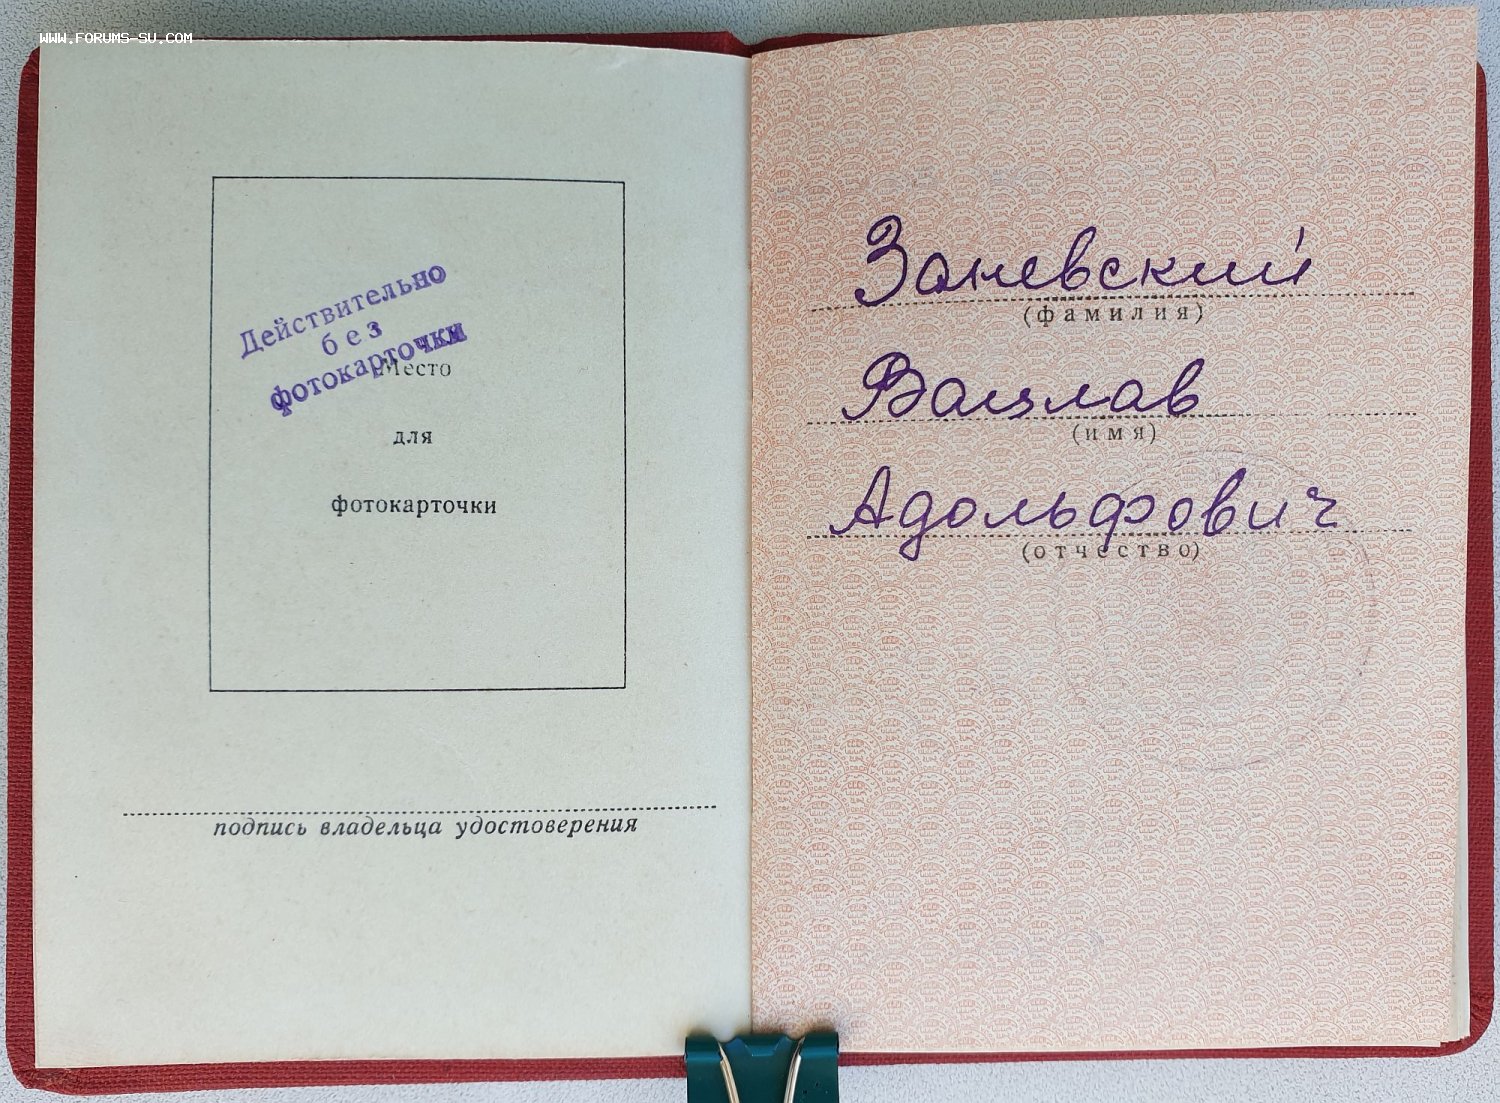 WWW.FORUMS-SU.COM
Действительно
без
фотокарточки
Место
для
фотокарточки
подпись владельца удостоверения
Заневский
(фамилия)
Вацлав
(имя)
Адольфович
(отчество)